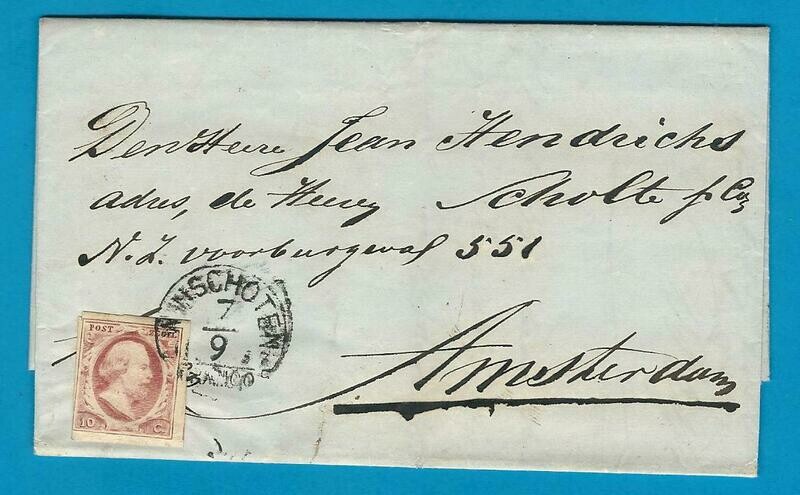 Den Heere Jean Hendrichs
adres, de Heeren Scholte & Co
N.Z. voorburgwal 551
WINSCHOTEN
7
9
FRANCO
POST ZEGEL
10 C.
Amsterdam